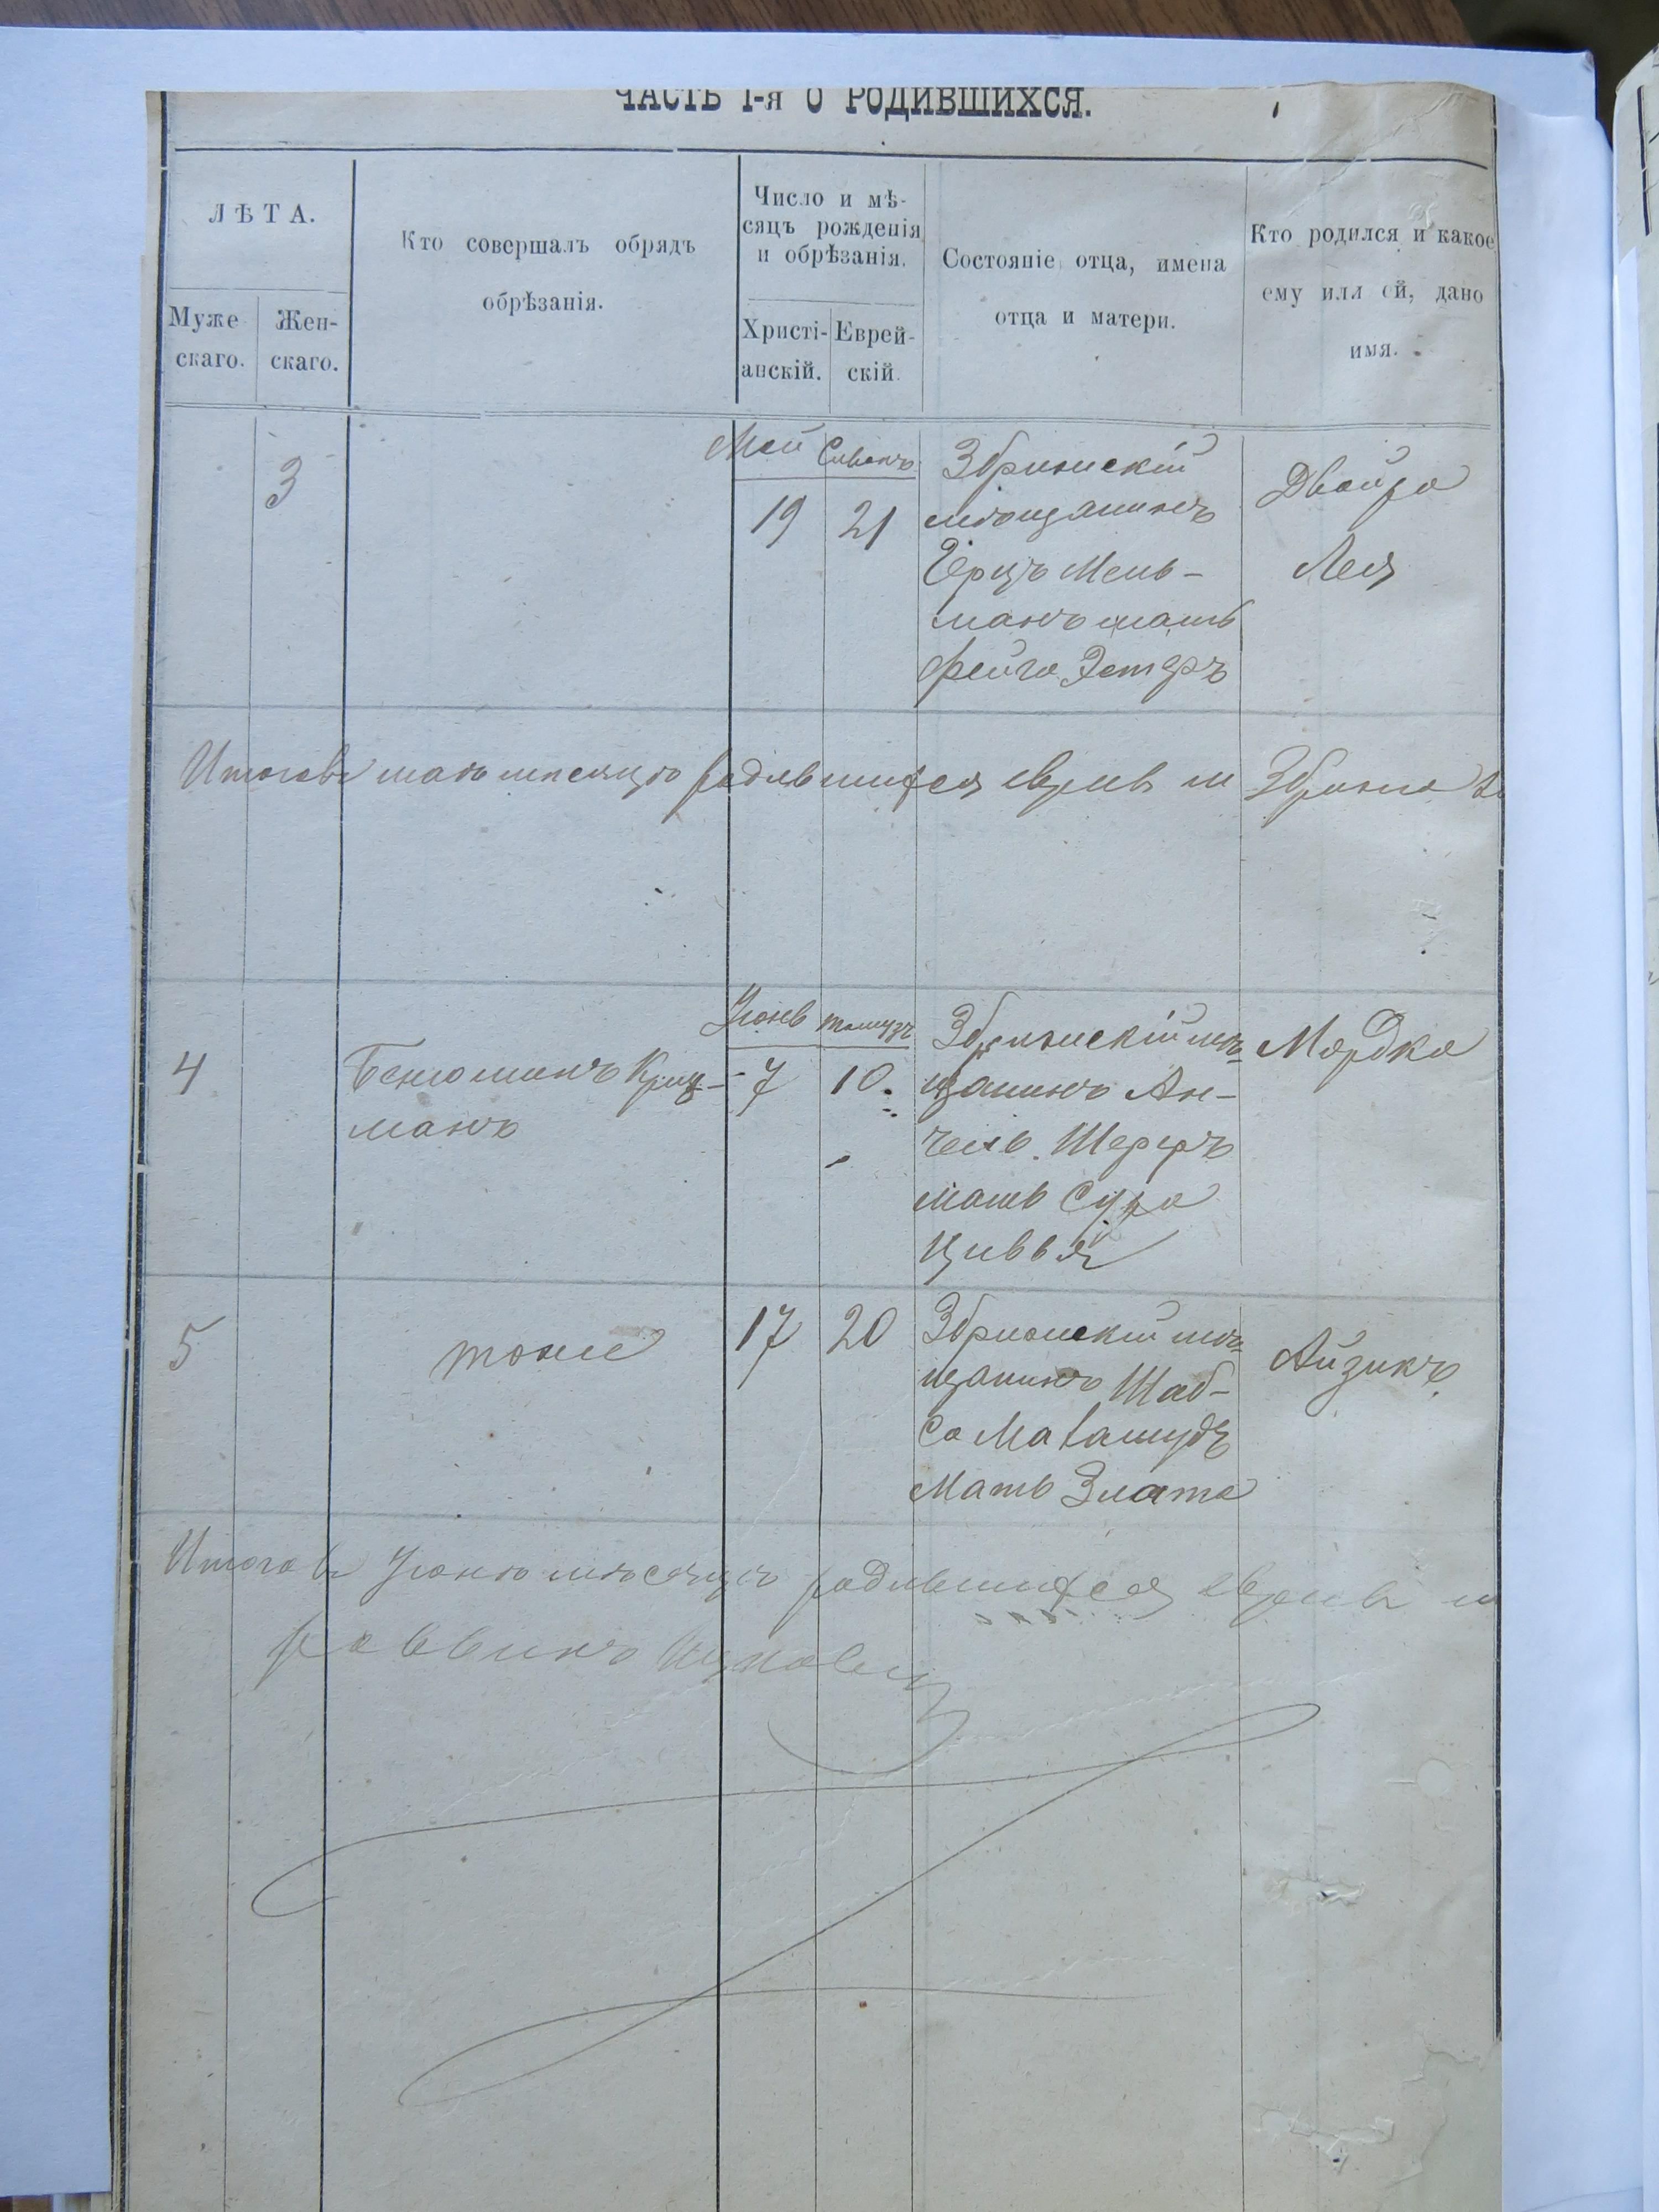 ЧАСТЬ I-я О РОДИВШИХСЯ.
ЛѢТА.
Муже
скаго.
Жен-
скаго.
Кто совершалъ обрядъ
обрѣзанія.
Число и мѣ-
сяцъ рожденія
и обрѣзанія.
Христі-
анскій.
Еврей-
скій.
Состояніе отца, имена
отца и матери.
Кто родился и какое
ему илл ей, дано
имя.
3
Май Сиванъ
19 21
Збрижскій
мѣщанинъ
Герцъ Мель-
манъ мать
Фейга Эстеръ
Двойра
Лея
Итого въ маѣ мѣсяцѣ родившихся евреевъ м Збрижѣ
4
Беньюминъ Криц-
манъ
Іюнь тамузъ
7 10
Збрижскій мѣ-
щанинъ Ан-
чель Шерръ
мать Сура
Цивья
Мордко
5
тоже
17 20
Збрижскій мѣ-
щанинъ
Шаб-
са
Мать Злата
Айзикъ
Итого въ Іюнѣ мѣсяцѣ родившихся евреевъ м
раввинъ